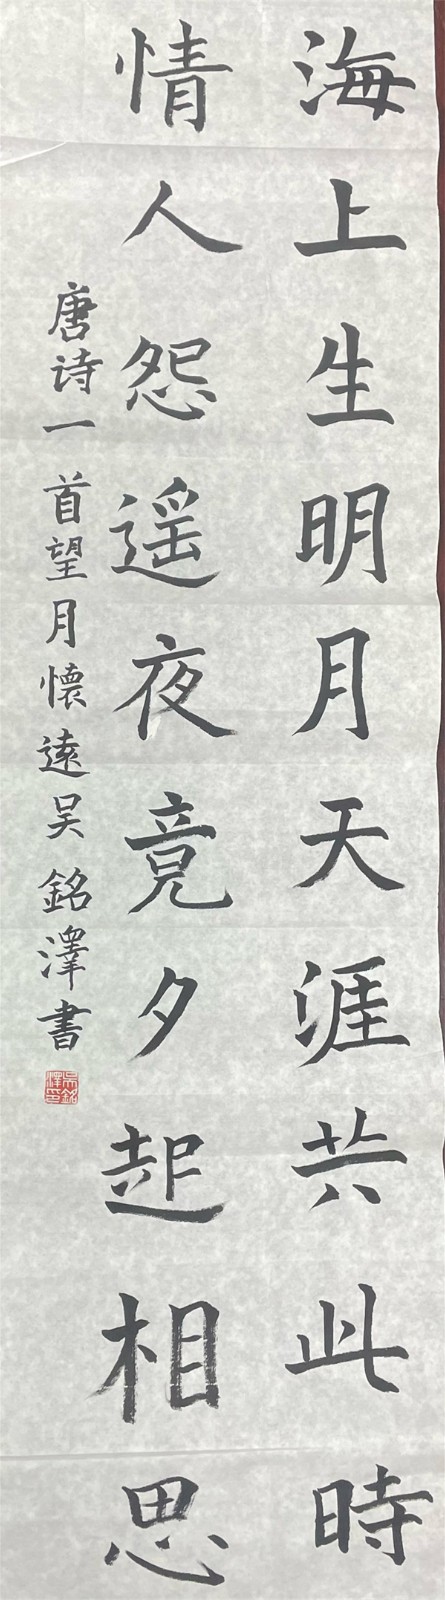 海上生明月天涯共此時
情人怨遥夜竟夕起相思
唐诗一首望月懷遠吴銘澤書
吴銘澤印